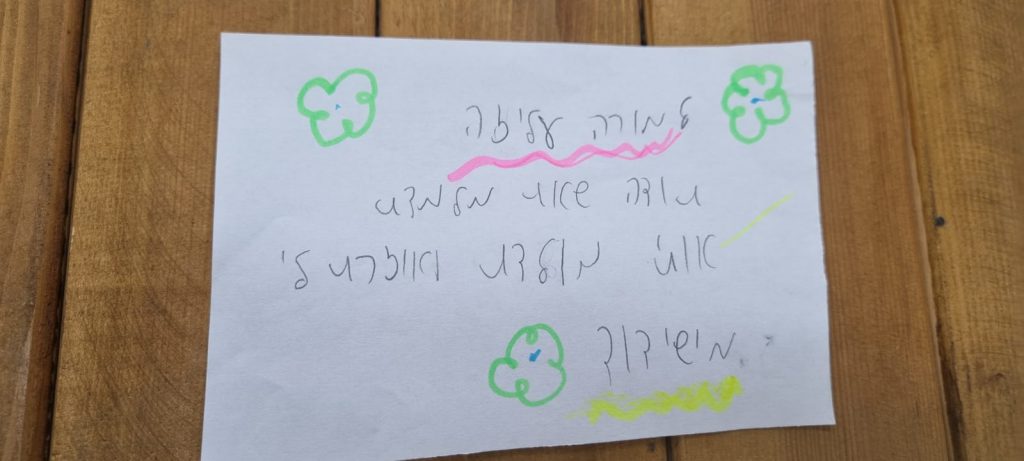 למורה עליזה
תודה שאת מלמדת
אותי מולדת ואוזרת לי
מישי דוד